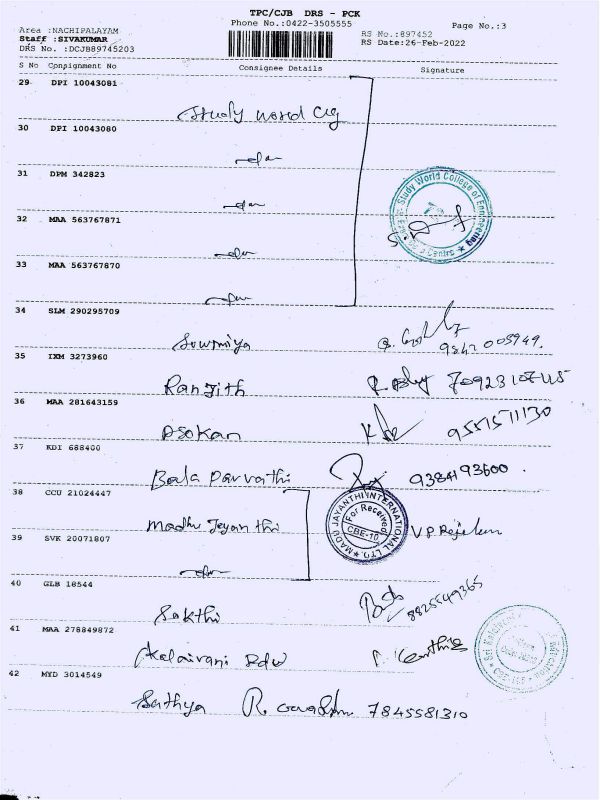 TPC/CJB DRS - PCK
Phone No.:0422-3505555
Page No.:3
Area :NACHIPALAYAM
Staff :SIVAKUMAR
DRS No. :DCJB89745203
RS No.:897452
RS Date:26-Feb-2022
S No Consignment No Consignee Details Signature
29 DPI 10043081
Study world Clg
30 DPI 10043080
31 DPM 342823
32 MAA 563767871
33 MAA 563767870
Study World College of Engineering
34 SLM 290295709
Sowmiya
9842 005949.
35 IXM 3273960
Ranjith
7092310745
36 MAA 281643159
Asokan
9551571130
37 KDI 688400
Bala Parvathi
9384193600.
38 CCU 21024447
Madhu Jeyanthi
MADU JAYANTHI INTERNATIONAL LTD.
For Received
CBE-10
39 SVK 20071807
40 GLB 18544
Sakthi
8825549365
41 MAA 278849872
Kalaivani Edu
42 MYD 3014549
Sathya
7845581310